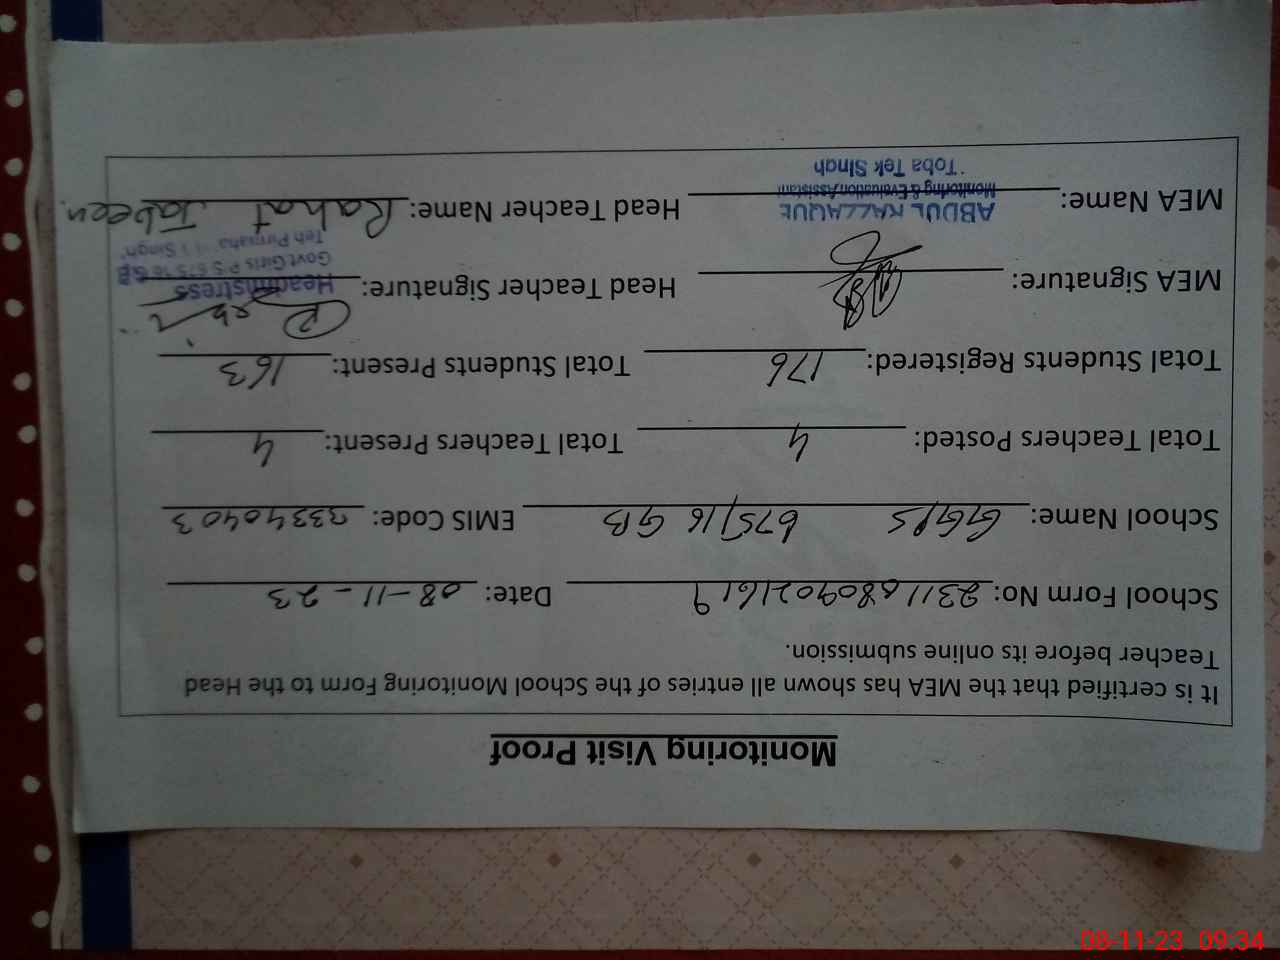 Monitoring Visit Proof
It is certified that the MEA has shown all entries of the School Monitoring Form to the Head
Teacher before its online submission.
School Form No: 23110809021619 Date: 08-11-23
School Name: GGPS 675/16 GB EMIS Code: 33340403
Total Teachers Posted: 4 Total Teachers Present: 4
Total Students Registered: 176 Total Students Present: 163
MEA Signature: Head Teacher Signature:
Headmistress
Govt Girls P.S 675 16 GB
MEA Name: ABDUL RAZZAQUE Head Teacher Name: Rahat Jabeen
Monitoring & Evaluation Assistant
Toba Tek Singh
08-11-23 09:34